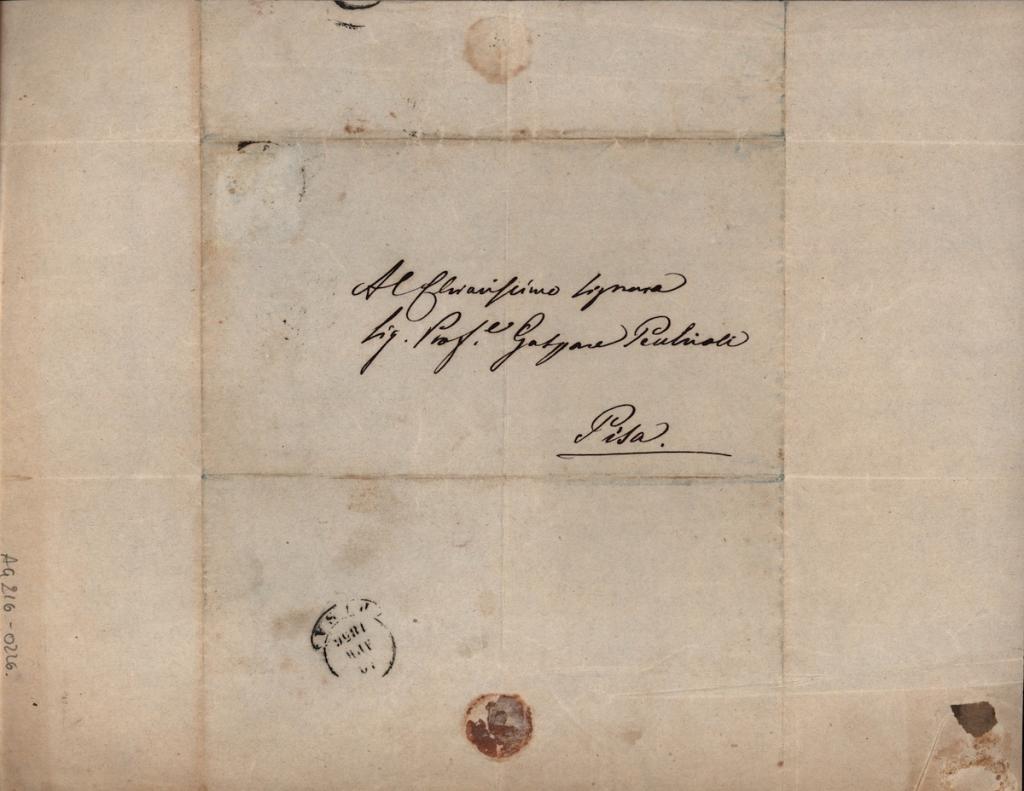 Al Chiarissimo Signore
Sig. Prof.e Gaspare Pecchioli
Pisa.
PISA
1856
APR
AG 216 - 0226.